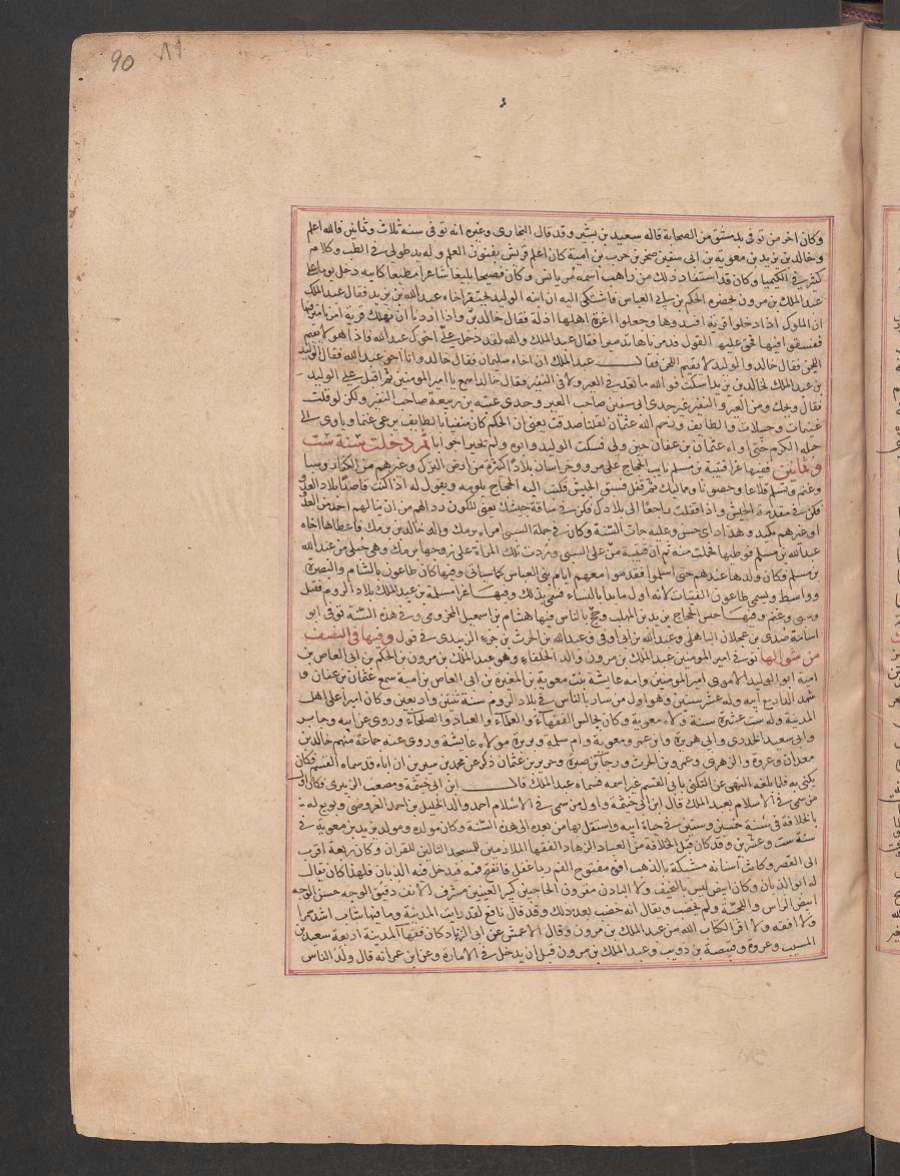 90 ٨٩
وكان اخر من توفى بدمشق من الصحابة قاله سعيد بن بشير وقد قال البخارى وغيره انه توفى سنة ثلاث وثمانين فالله اعلم
وخالد بن يزيد بن معوية بن ابى سفين صخر بن حرب بن امية كان اعلم قريش بفنون العلم وله يد طولى فى الطب وكلام
كثير فى الكيميا وكان قد استفاد ذلك من راهب اسمه مريانس وكان فصيحا بليغا شاعرا مطبقا كابيه دخل يوما على
عبد الملك بن مرون بحضرة الحكم بن ابى العاص فاشتكى اليه ان ابنه الوليد يحتقر اخاه عبد الله بن يزيد فقال عبد الملك
ان الملوك اذا دخلوا قرية افسدوها وجعلوا اعزة اهلها اذلة فقال خالد واذا اردنا ان نهلك قرية امرنا مترفيها
ففسقوا فيها فحق عليها القول فدمرناها تدميرا فقال عبد الملك والله لقد دخل على اخوك عبد الله فاذا هو لا يقيم
اللحن فقال خالد والوليد لا يقيم اللحن فقال عبد الملك ان اخاه سليمان فقال خالد وانا اخو عبد الله فقال الوليد
بن عبد الملك لخالد بن يزيد اسكت فوالله ما تعد فى العير ولا فى النفير فقال خالد اسمع يا امير المومنين ثم اقبل على الوليد
فقال ويحك ومن العير والنفير غير جدى ابى سفين صاحب العير وجدى عتبة بن ربيعة صاحب النفير ولكن لو قلت
غنيمات وحبيلات والطايف ورحم الله عثمان لقلنا صدقت يعنى ان الحكم كان منفيا بالطايف يرعى غنما وياوى الى
حبلة الكرم حتى اواه عثمان بن عفان حين ولى فسكت الوليد وابوه ولم يحيرا جوابا ثم دخلت سنة ست
وثمانين ففيها غزا قتيبة بن مسلم نايب الحجاج على مرو وخراسان بلادا كثيرة من ارض الترك وغيرهم من الكفار وسبا
وغنم وتسلم قلاعا وحصونا وممالك ثم قفل فسبق الجيش فكتب اليه الحجاج يلومه ويقول له اذا كنت قاصدا بلاد العدو
فكن فى مقدمة الجيش واذا قفلت راجعا الى بلادك فكن فى ساقة جيشك يعنى لتكون ردءا لهم من ان ينالهم احد من العدو
او غيرهم بكيد وهذا راى حسن وعليه جات السنة وكان فى جملة السبى امراة برمك والد خالد بن برمك فاعطاها اخاه
عبد الله بن مسلم فوطيها فحملت منه ثم ان قتيبة من على السبى وردت تلك المراة على زوجها برمك وهى حبلى من عبد الله
بن مسلم فكان ولدها عندهم حتى اسلموا فقدموا معهم ايام بنى العباس كما سياتى وفيها كان طاعون بالشام والبصرة
وواسط ويسمى طاعون الفتيات لانه اول ما بدا بالنساء فسمى بذلك وفيها غزا مسلمة بن عبد الملك بلاد الروم فقتل
وسبى وغنم وفيها حبس الحجاج يزيد بن المهلب وحج بالناس فيها هشام بن اسمعيل المخزومى وفى هذه السنة توفى ابو
امامة صدى بن عجلان الباهلى وعبد الله بن ابى اوفى وعبد الله بن الحرث بن جزء الزبيدى فى قول وفيها فى النصف
من شوالها توفى امير المومنين عبد الملك بن مرون والد الخلفاء وهو عبد الملك بن مرون بن الحكم بن ابى العاص بن
امية ابو الوليد الاموى امير المومنين وامه عايشة بنت معوية بن المغيرة بن ابى العاص بن امية سمع عثمان بن عفان و
شهد الدار مع ابيه وله عشر سنين وهو اول من سار بالناس فى بلاد الروم سنة ثنتين واربعين وكان اميرا على اهل
المدينة وله ست عشرة سنة ولاه معوية وكان يجالس الفقهاء والعلماء والعباد والصلحاء وروى عن ابيه وجابر
وابى سعيد الخدرى وابى هريرة وابن عمر ومعوية وام سلمة وبريرة مولاه عايشة وروى عنه جماعة منهم خالد بن
معدان وعروة والزهرى وعمرو بن الحرث ورجا بن حيوة وجرير بن عثمان ذكر عن محمد بن سيرين ان اباه قد سماه القسم فكان
يكنى به فلما بلغه النهى عن التكنى بابى القسم غير اسمه فسماه عبد الملك قال ابن ابى خيثمة ومصعب الزبيرى فكان اول
من سمى فى الاسلام بعبد الملك قال ابن ابى خيثمة واول من سمى فى الاسلام احمد والد الخليل بن احمد العروضى وبويع له
بالخلافة فى سنة خمس وستين فى حياة ابيه واستقل بها من بعده الى هذه السنة وكان مولده ومولد يزيد بن معوية فى
سنة ست وعشرين وقد كان قبل الخلافة من العباد الزهاد الفقها الملازمين للمسجد التالين للقران وكان ربعة اقرب
الى القصر وكانت اسنانه مشبكة بالذهب افوه مفتوح الفم ربما غفل فانفتح فمه فيدخل فيه الذبان فلهذا كان يقال
له ابو الذبان وكان ابيض ليس بالنحيف ولا البادن مقرون الحاجبين كبير العينين مشرف الانف دقيق الوجه حسن الوجه
ابيض الراس واللحية ولم يخضب ويقال انه خضب بعد ذلك وقد قال نافع لقد رايت المدينة وما فيها شاب اشد تشميرا
ولا افقه ولا اقرا لكتاب الله من عبد الملك بن مرون وقال الاعمش عن ابى الزناد كان فقها المدينة اربعة سعيد بن
المسيب وعروة وقبيصة بن ذويب وعبد الملك بن مرون قبل ان يدخل فى الامارة وعن ابن عمر انه قال ولد الناس